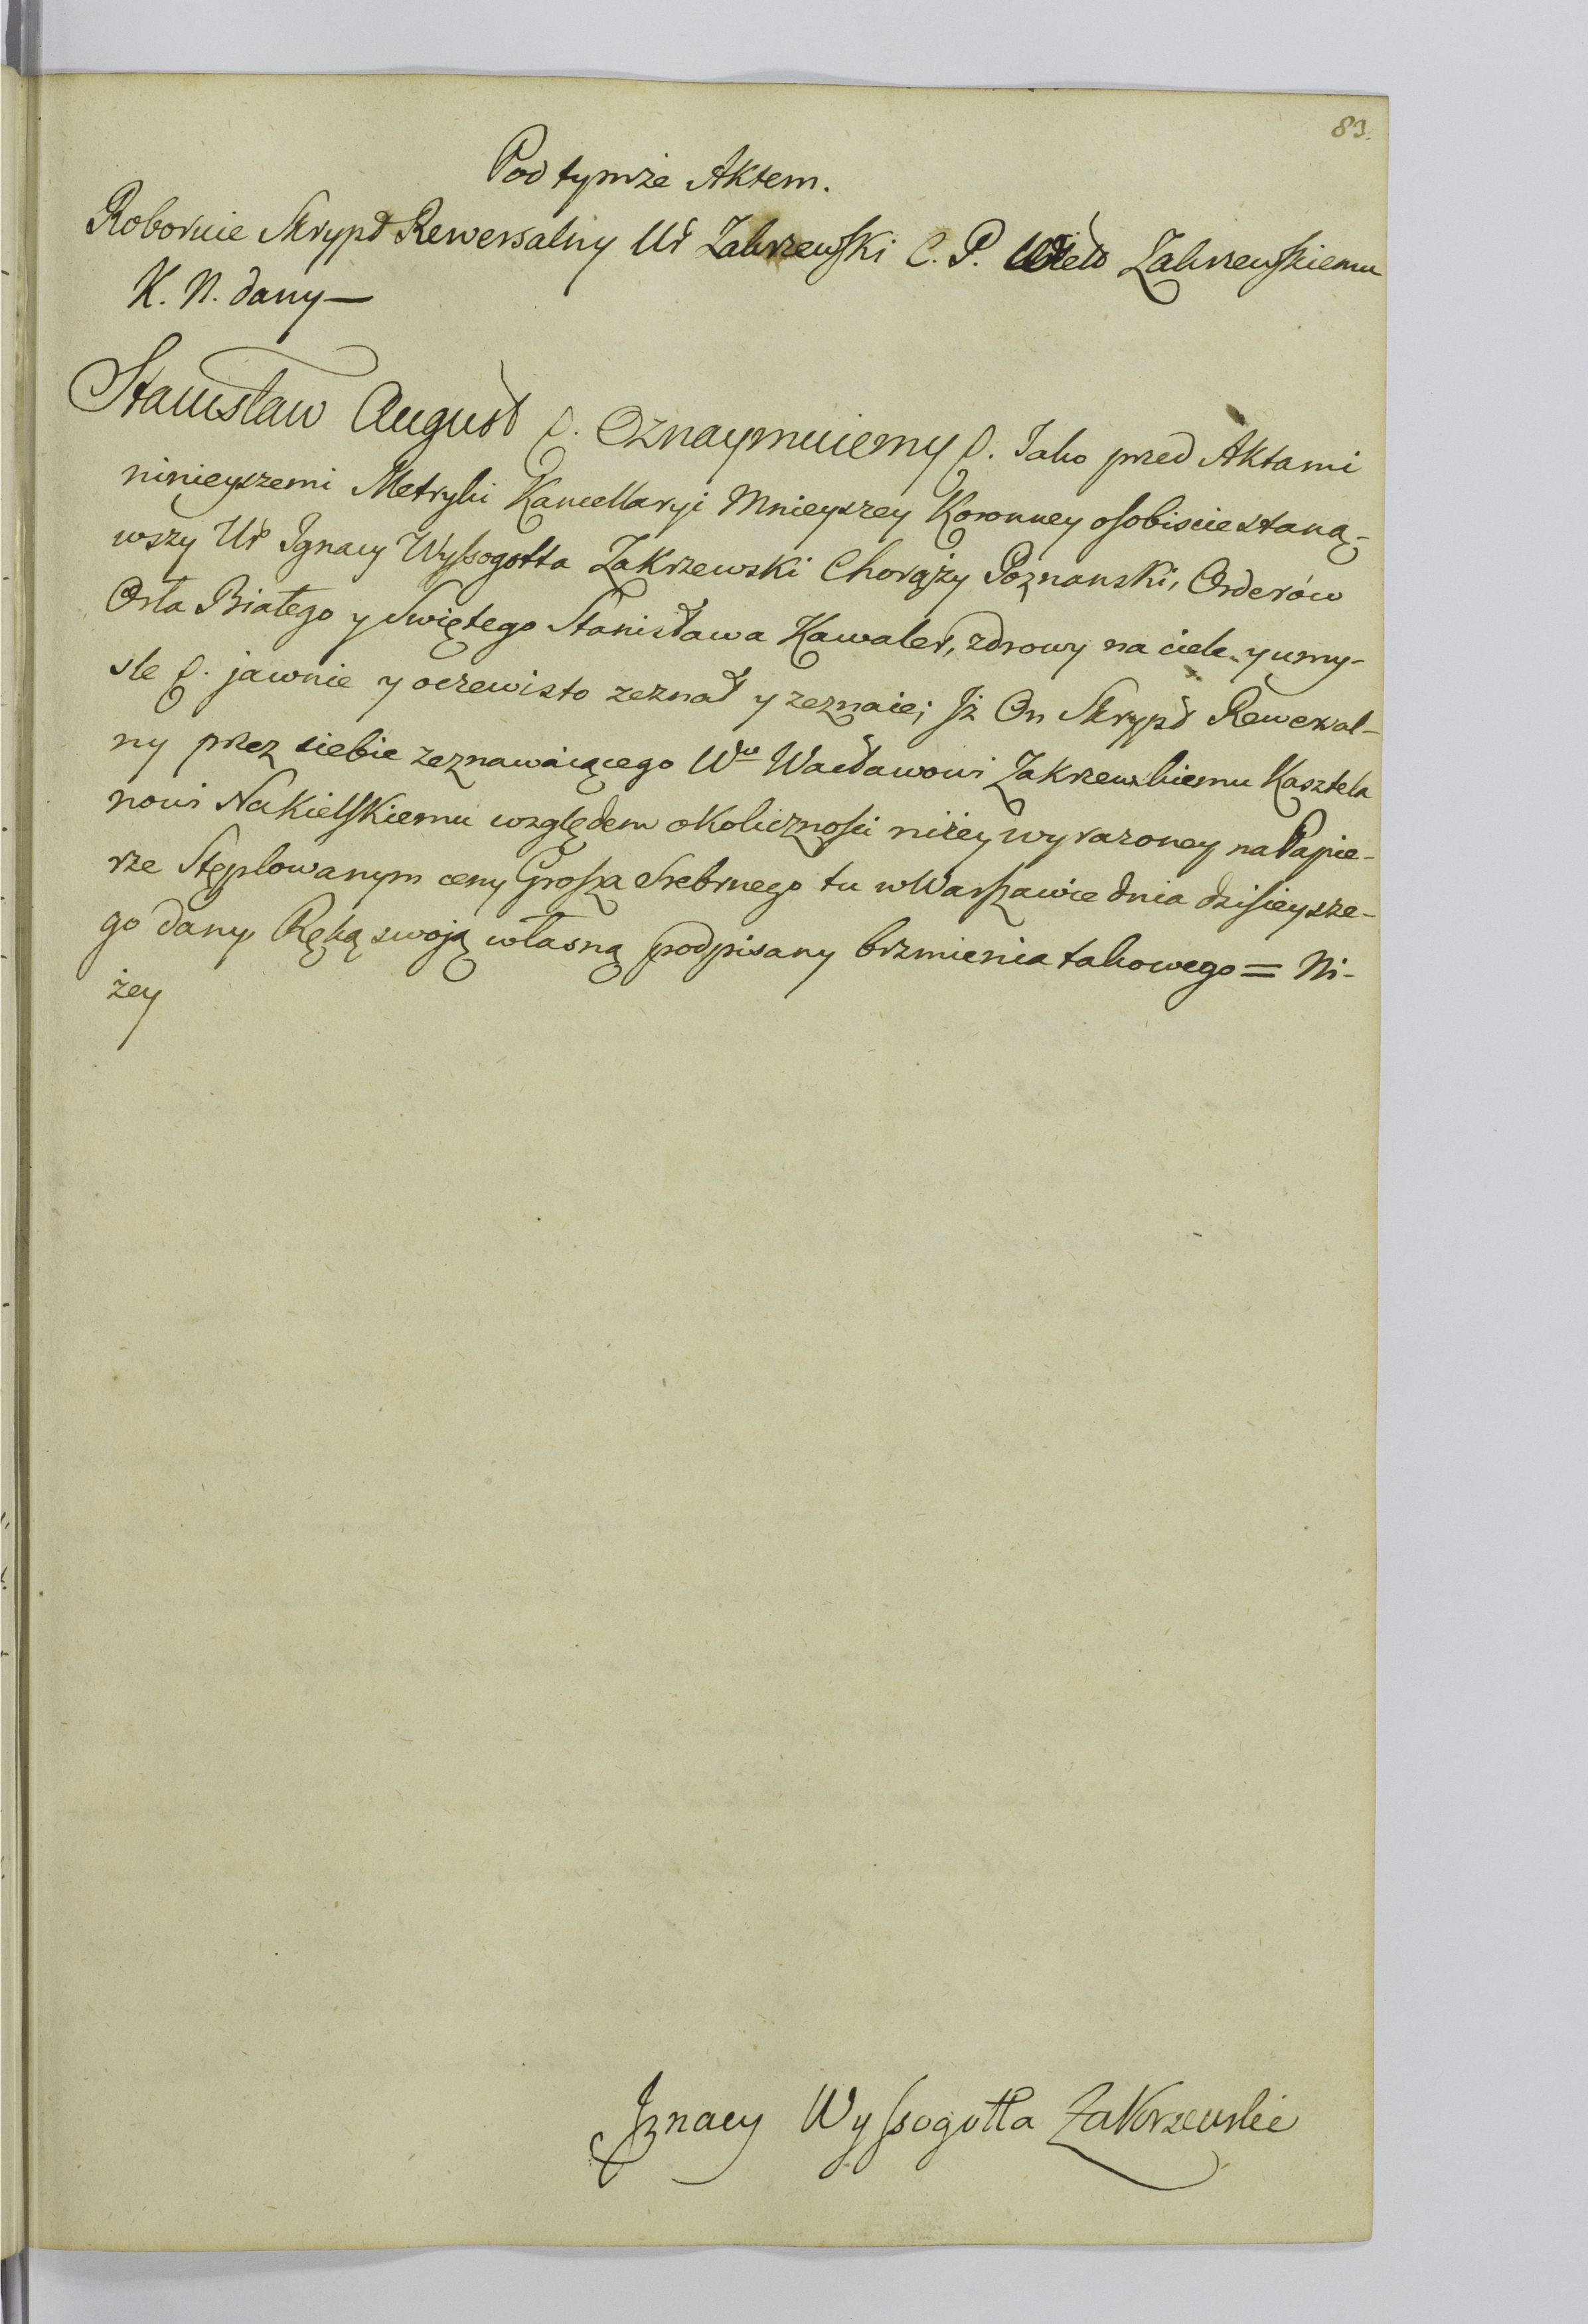 83.
Pod tymże Aktem.
Roboruie Skrypt Rewersalny Ur Zakrzewski C. P. Zakrzewskiemu
K. N. dany—
Stanisław August &. Oznaymuiemy &. Iako przed Aktami
ninieyszemi Metryki Kancellaryi Mnieyszey Koronney osobiscie staną-
wszy Ur Ignacy Wyssogotta Zakrzewski Chorąży Poznanski, Orderów
Orła Białego y Swiętego Stanisława Kawaler, zdrowy na ciele y umy-
sle &. jawnie y oczewisto zeznał y zeznaie; Jż On Skrypt Rewersal-
ny przez siebie zeznawaiącego Wu Wacławowi Zakrzewskiemu Kasztela
nowi Nakielskiemu względem okolicznosci niżey wyrażoney na Papie-
rze Stęplowanym ceny Grosza Srebrnego tu w Warszawie dnia dzisieysze-
go dany, Ręką swoją własną podpisany brzmienia takowego = Ni-
żey
Ignacy Wyssogotta Zakrzewski